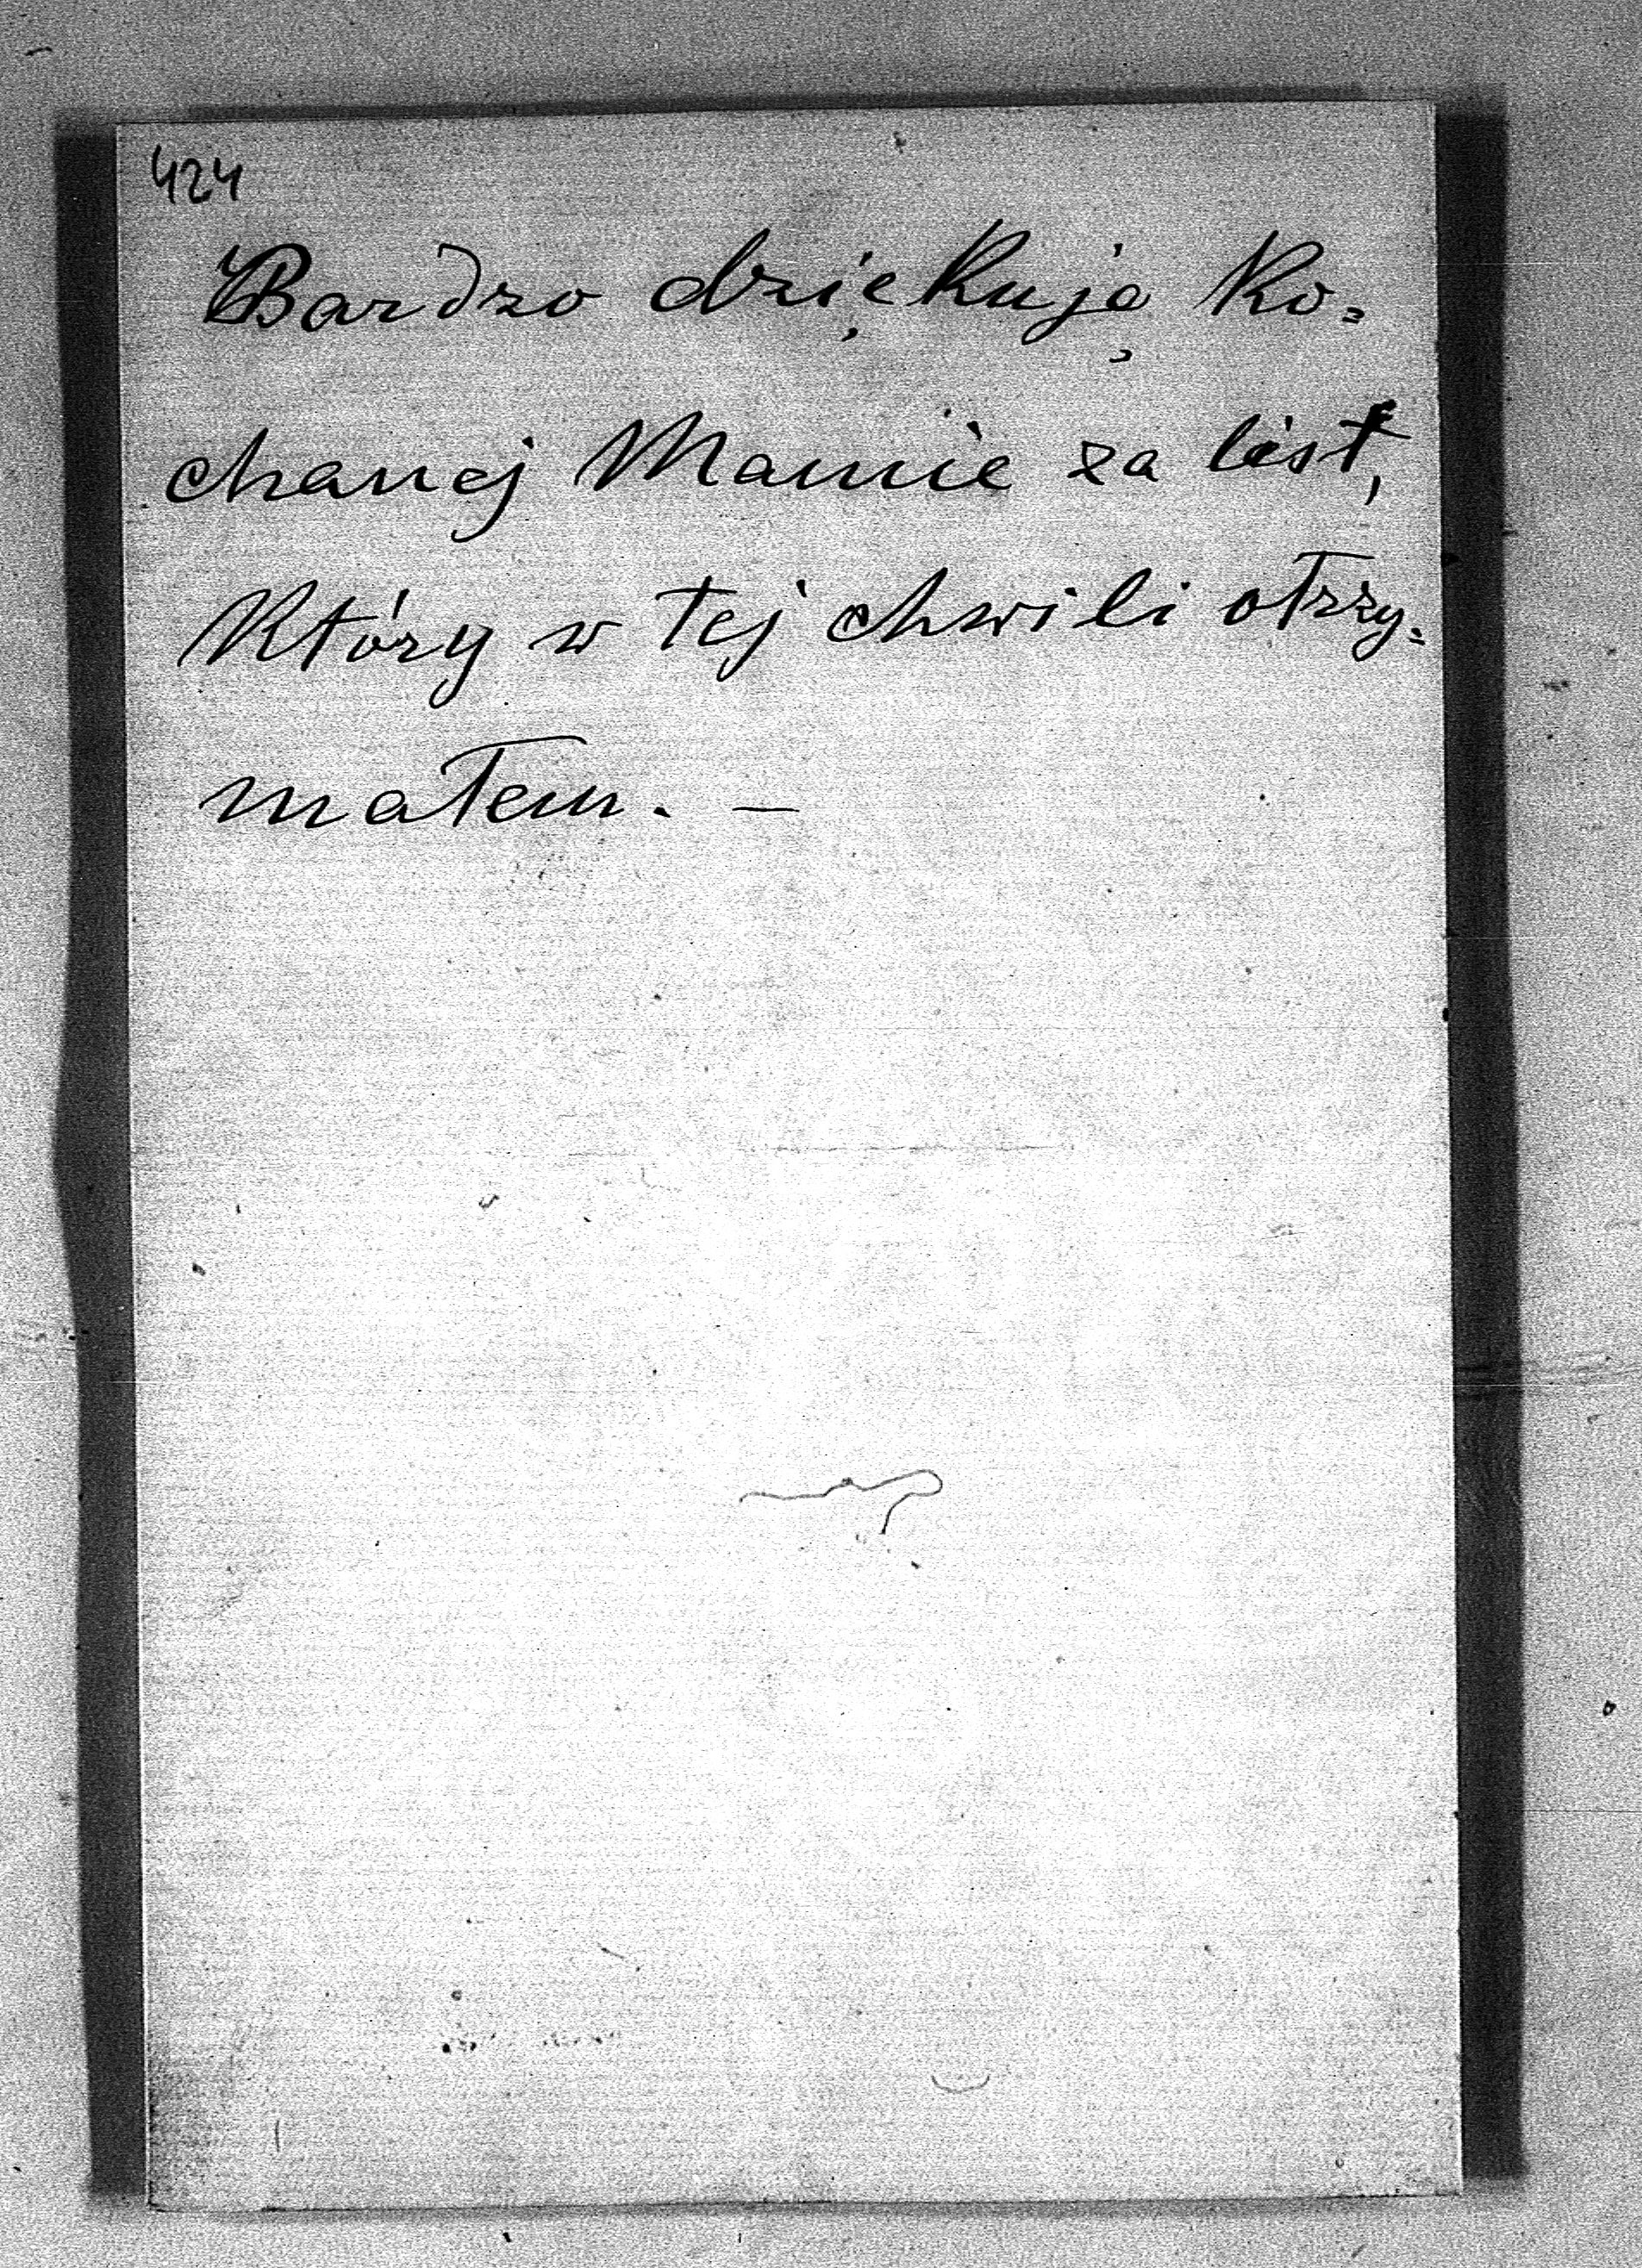 424
Bardzo dziękuję Ko=
chanej Mamie za list,
który w tej chwili otrzy=
małem. —